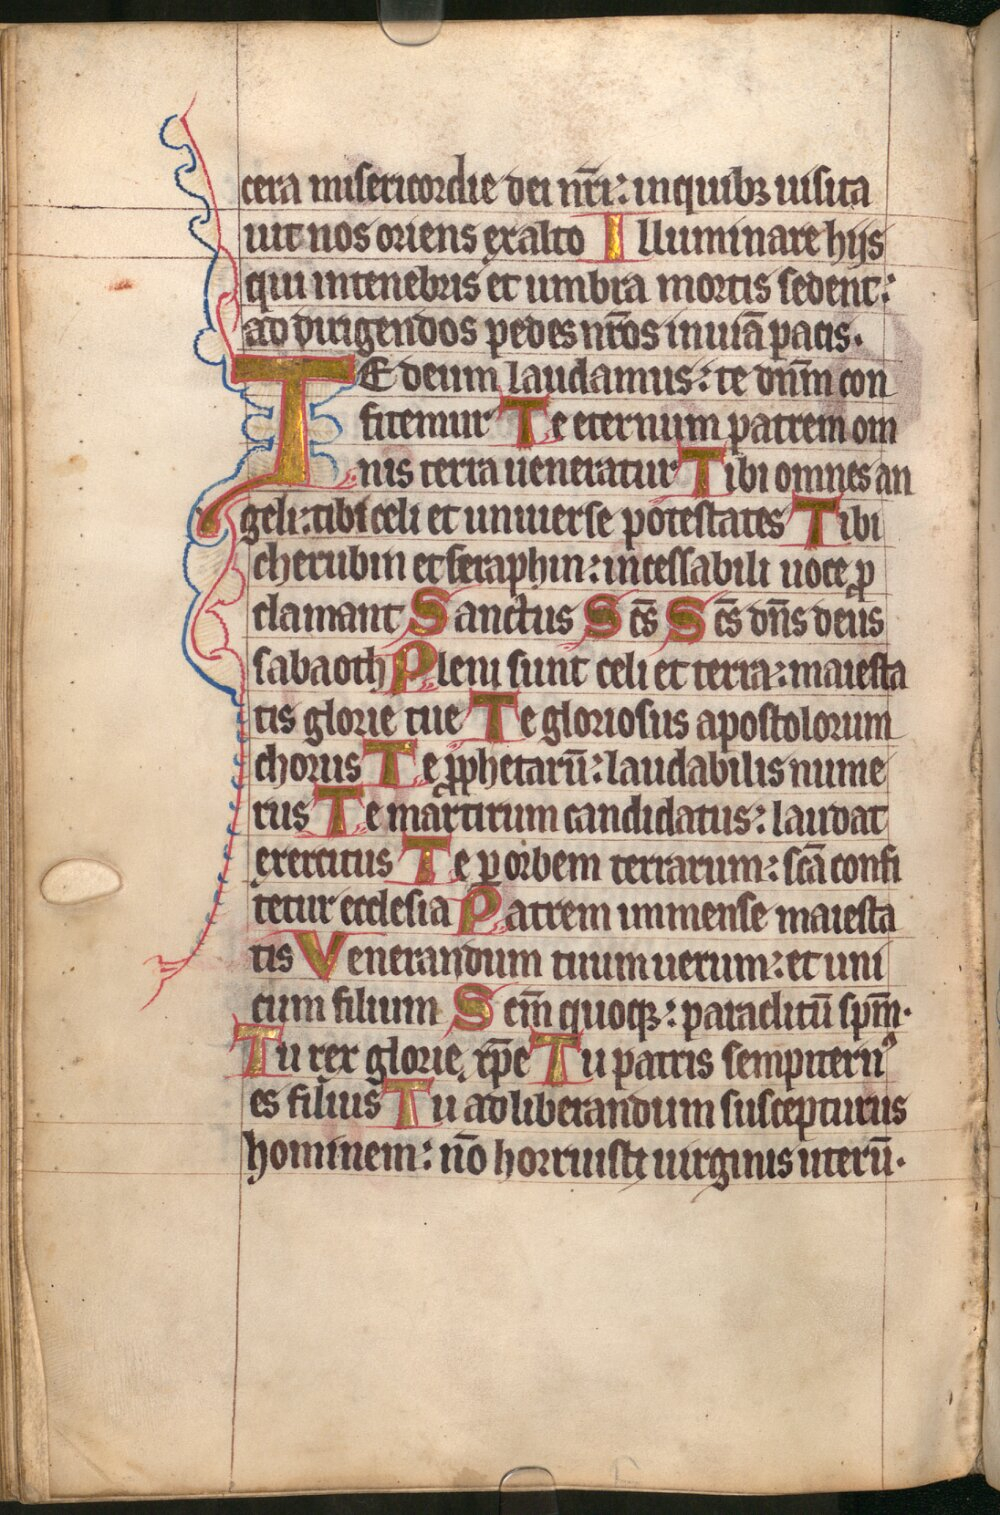 cera misericordie dei nr̄i: inquibꝫ uisita
uit nos oriens exalto Illuminare hijs
qui intenebris et umbra mortis sedent:
ad dirigendos pedes nr̄os inuiā pacis.
TE deum laudamus: te dn̄m con
fitemur Te eternum patrem om
nis terra ueneratur Tibi omnes an
geli: tibi celi et uniuerse potestates Tibi
cherubin et seraphin: incessabili uoce ꝓ
clamant Sanctus Sc̄s Sc̄s dn̄s deus
sabaoth Pleni sunt celi et terra: maiesta
tis glorie tue Te gloriosus apostolorum
chorus Te ꝓphetarū: laudabilis nume
rus Te martirum candidatus: laudat
exercitus Te ꝑ orbem terrarum: sc̄a confi
tetur ecclesia Patrem immense maiesta
tis Venerandum tuum uerum: et uni
cum filium Sc̄m quoqꝫ: paraclitū sp̄m.
Tu rex glorie xp̄e Tu patris sempitern⁹
es filius Tu ad liberandum suscepturus
hominem: nō horruisti uirginis uterū.